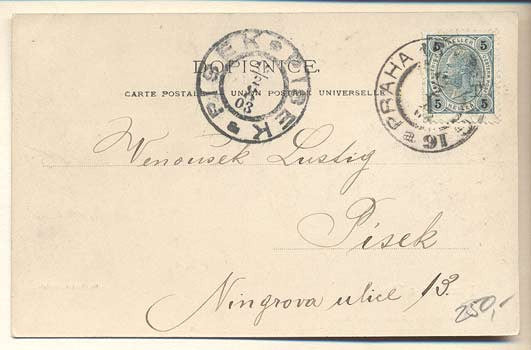 DOPISNICE.
CARTE POSTALE UNION POSTALE UNIVERSELLE
PISEK PISEK
03
PRAHA
16
5 5
5 5
Venoušek Lustig
Písek
Ningrova ulice 13.
250,-